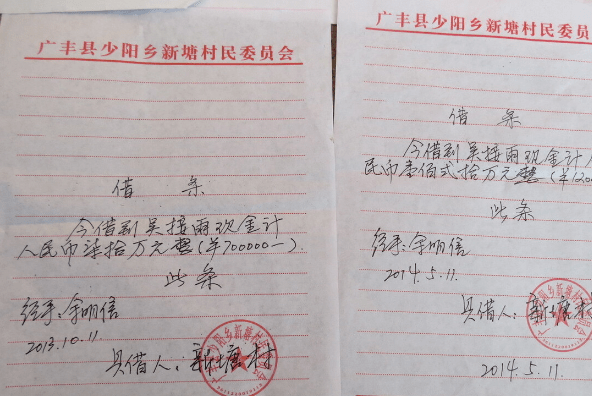 广丰县少阳乡新塘村民委员会
借 条
今借到吴接雨现金计
人民币柒拾万元整(¥700000一)
此条
经手:余明信
2013.10.11.
具借人:新塘村
广丰县少阳乡新塘村民委员
借 条
今借到吴接雨现金计人
民币壹佰弍拾万元整(¥1200
此条
经手:余明信
2014.5.11.
具借人:新塘村
2014.5.11.